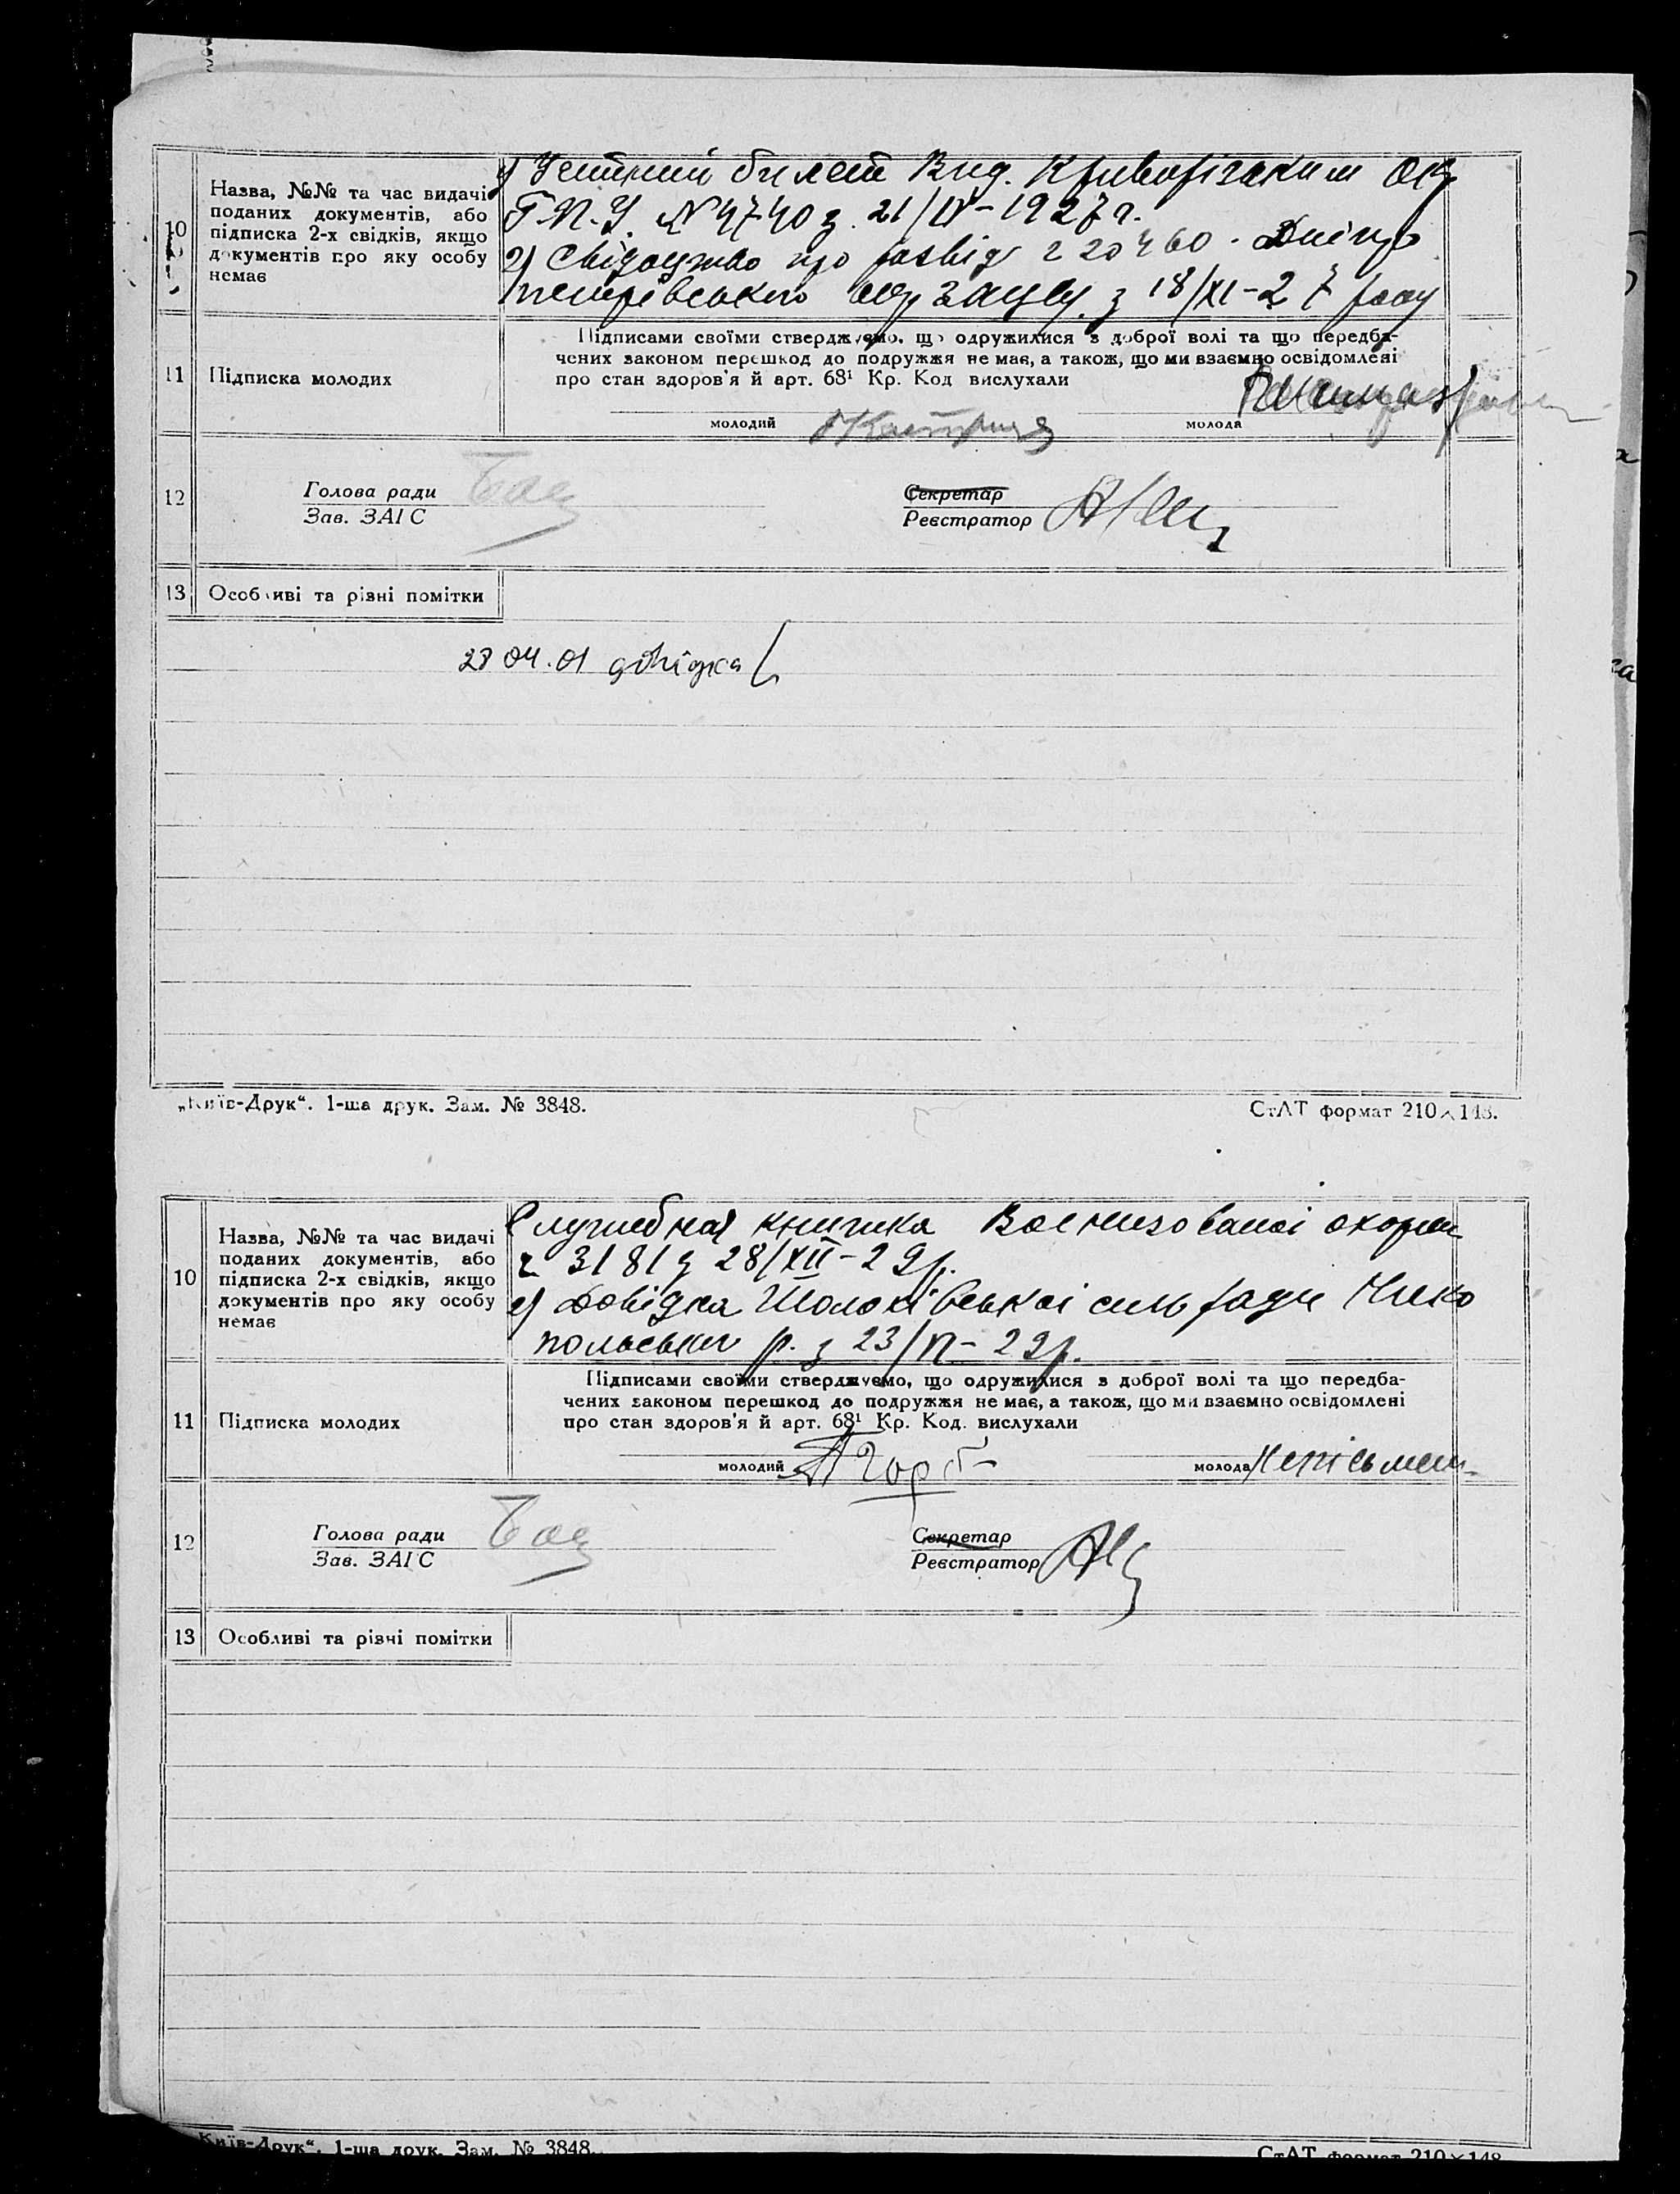 10
Назва, №№ та час видачі
поданих документів, або
підписка 2-х свідків, якщо
документів про яку особу
немає
1) Учетний билет Вид. Криворізским Окр
Г.П.У. № 4740 з 21/IV-1927 г.
2) Свідоцтво про розвід ч 20460. Дніпро
петрівського окр ЗАЦСу. з 18/XI-27 року
11
Підписка молодих
Підписами своїми стверджуємо, що одружилися з доброї волі та що передба-
чених законом перешкод до подружжя не має, а також, що ми взаємно освідомлені
про стан здоров'я й арт. 68¹ Кр. Код вислухали
молодий
молода
12
Голова ради
Зав. ЗАГС
Секретар
Реєстратор
13
Особливі та різні помітки
28 04.01 довідка
„Київ-Друк“. 1-ша друк. Зам. № 3848.
СтАТ формат 210×148.
10
Назва, №№ та час видачі
поданих документів, або
підписка 2-х свідків, якщо
документів про яку особу
немає
Служебная книжка Воєнизованої охорони
ч 3181 з 28/XII-29р.
2) Довідка Шолохівської сільради Нико
польського р. з 23/VI-29р.
11
Підписка молодих
Підписами своїми стверджуємо, що одружилися з доброї волі та що передба-
чених законом перешкод до подружжя не має, а також, що ми взаємно освідомлені
про стан здоров'я й арт. 68¹ Кр. Код. вислухали
молодий
молода Неписьмен
12
Голова ради
Зав. ЗАГС
Секретар
Реєстратор
13
Особливі та різні помітки
Київ-Друк“. 1-ша друк. Зам. № 3848.
СтАТ формат 210×148